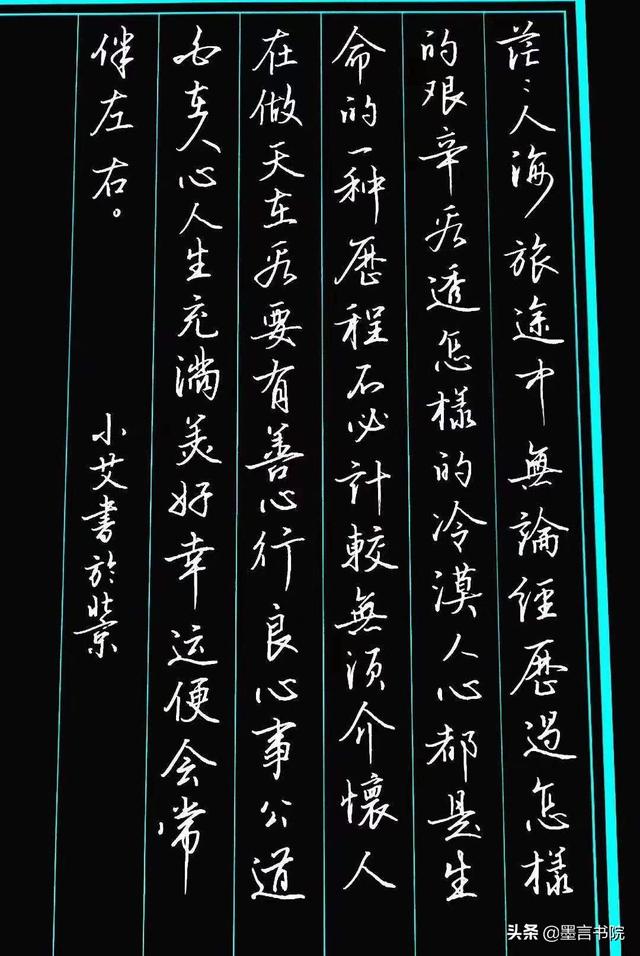 茫〻人海旅途中無論經歷過怎樣
的艰辛看透怎樣的冷漠人心都是生
命的一种歷程不必計較無須介懷人
在做天在看要有善心行良心事公道
自在人心人生充滿美好幸運便会常
伴左右。
小艾書於北京
头条 @墨言书院